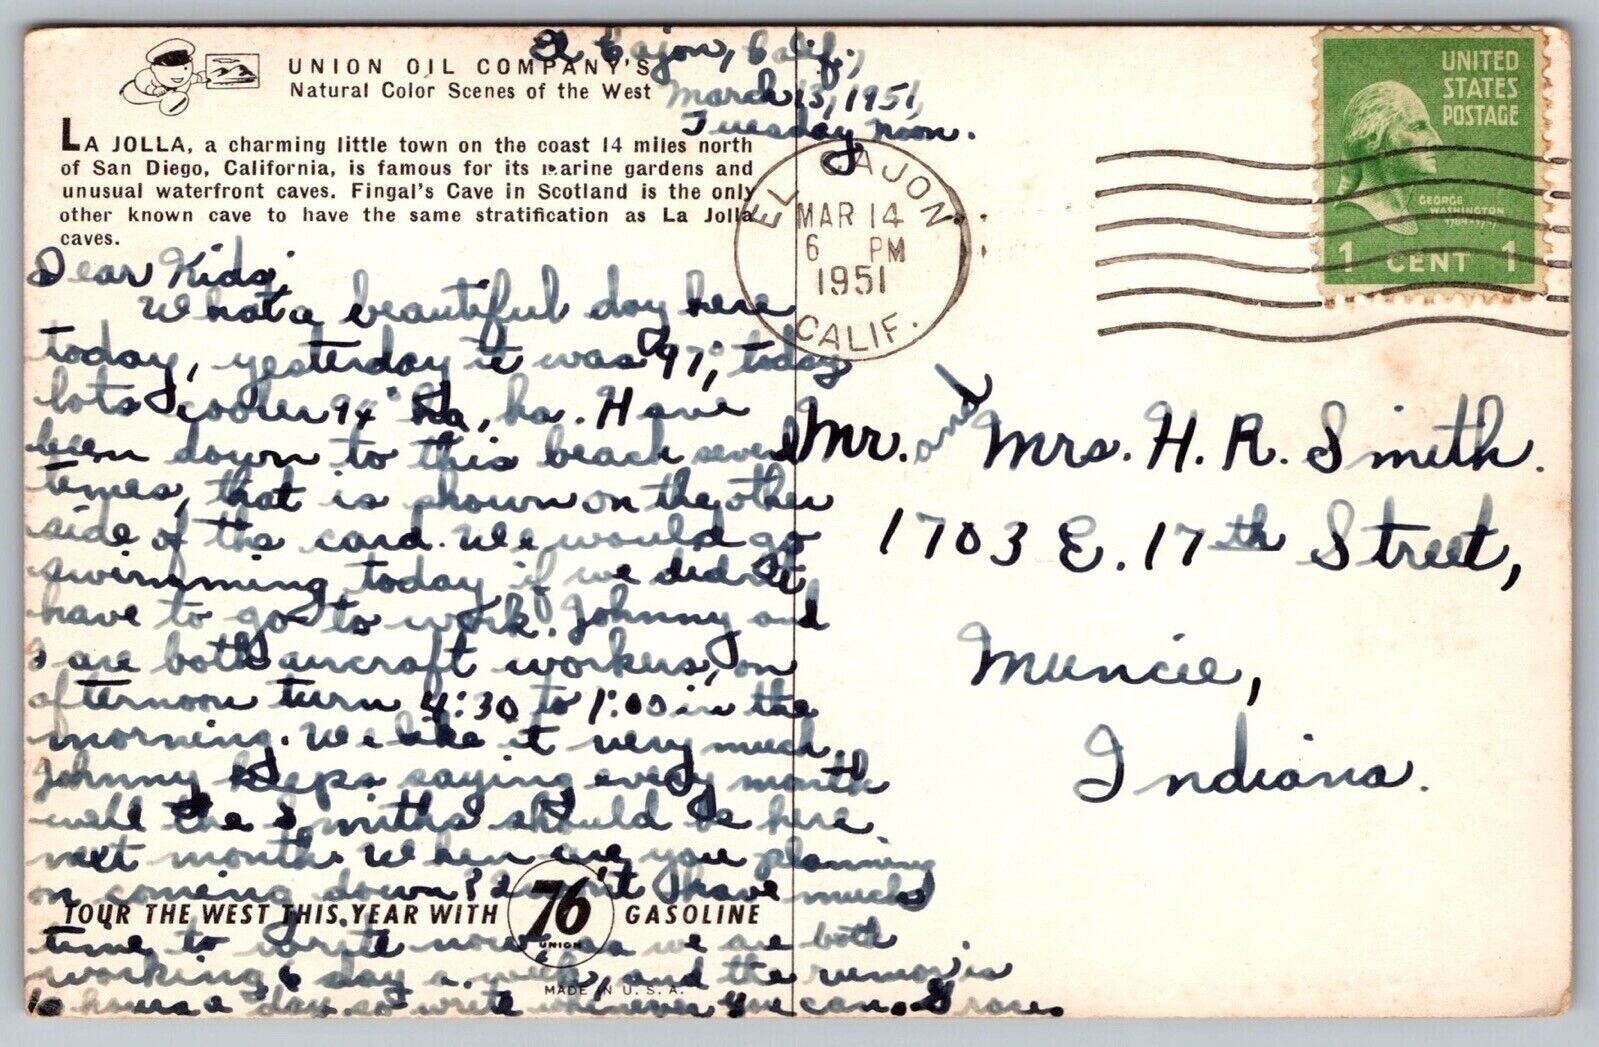 UNION OIL COMPANY'S
Natural Color Scenes of the West
LA JOLLA, a charming little town on the coast 14 miles north
of San Diego, California, is famous for its marine gardens and
unusual waterfront caves. Fingal's Cave in Scotland is the only
other known cave to have the same stratification as La Jolla
caves.
El Cajon, Calif.,
March 13, 1951,
Tuesday Noon.
Dear Kids,
What a beautiful day here
today, yesterday it was 97°, today
lots cooler 94° ha, ha. Have
been down to this beach several
times, that is shown on the other
side of this card. We would go
swimming today if we didn't
have to go to work. Johnny and
I are both aircraft workers, on
afternoon turn 4:30 to 1:00 in the
morning. We like it very much.
Johnny keeps saying every month
well the Smiths should be here
next month. When are you planning
on coming down? Don't have much
time to write now as we are both
working 6 day a week, and the rumor is
10 hours a day. so write whenever you can. Grace.
TOUR THE WEST THIS YEAR WITH 76 GASOLINE
UNION
MADE IN U.S.A.
EL CAJON
MAR 14
6 PM
1951
CALIF.
UNITED
STATES
POSTAGE
GEORGE
WASHINGTON
1789-1797
1 CENT 1
Mr. and Mrs. H. R. Smith.
1703 E. 17th Street,
Muncie,
Indiana.